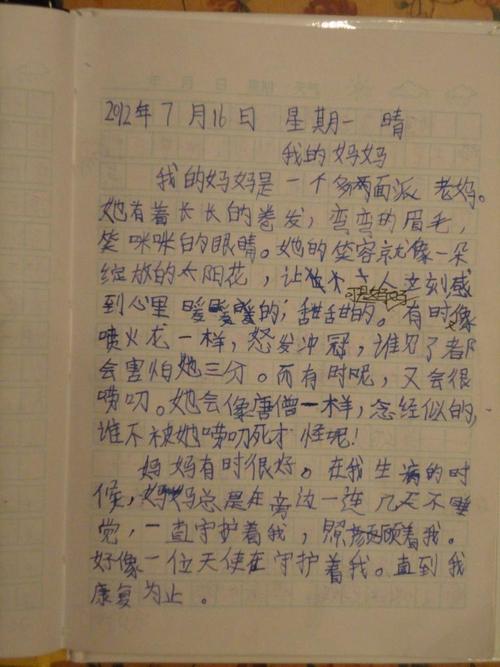 2012年7月16日 星期一 晴
我的妈妈
我的妈妈是一个多两面派老妈。
她有着长长的卷发，弯弯的眉毛，
笑咪咪的眼睛。她的笑容就像一朵
绽放的太阳花，让人立刻感
到心里暖暖暖的；甜甜的。有时像
喷火龙一样，怒发冲冠，谁见了都
会害怕她三分。而有时呢，又会很
唠叨。她会像唐僧一样，念经似的，
谁不被她唠叨死才怪呢！
妈妈有时很好。在我生病的时
候，妈妈总是在旁边一连几天不睡
觉，一直守护着我，照顾着我。
好像一位天使在守护着我。直到我
康复为止。